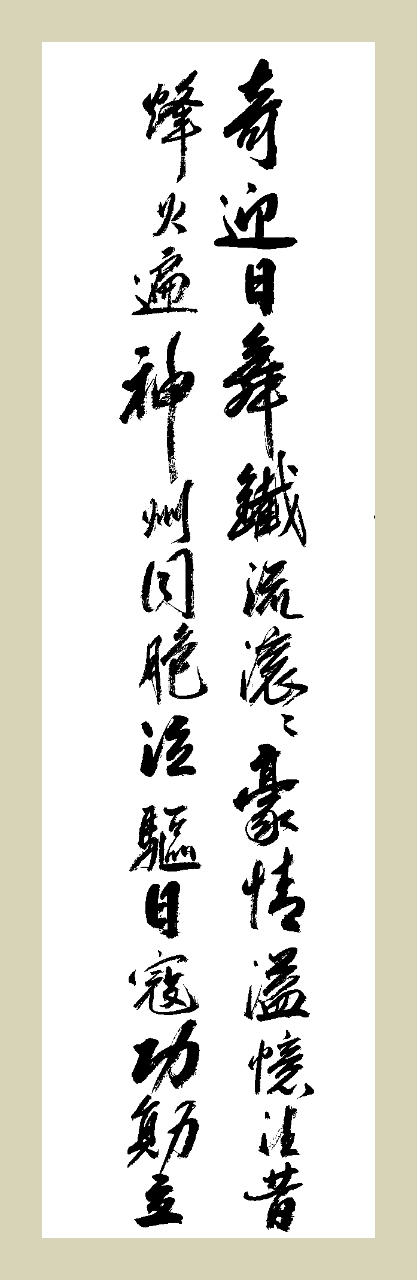 奇迎日舞鐵流滾〻豪情溢憶往昔
烽火遍神州同胞泣驅日寇功勛立